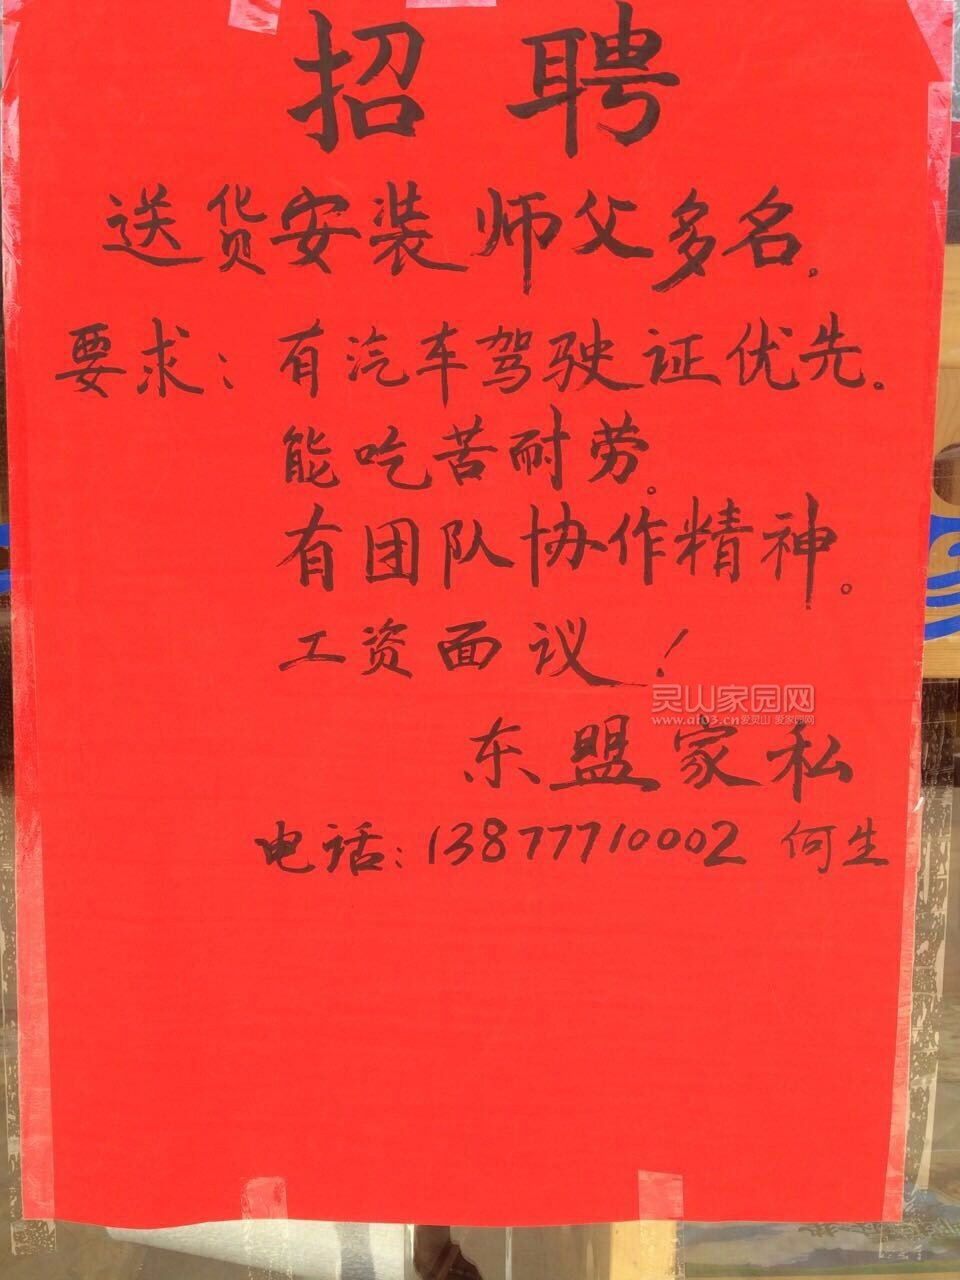 招聘
送货安装师父多名.
要求：有汽车驾驶证优先。
能吃苦耐劳。
有团队协作精神。
工资面议！
灵山家园网
www.af03.cn爱灵山 爱家园网
东盟家私
电话：13877710002 何生